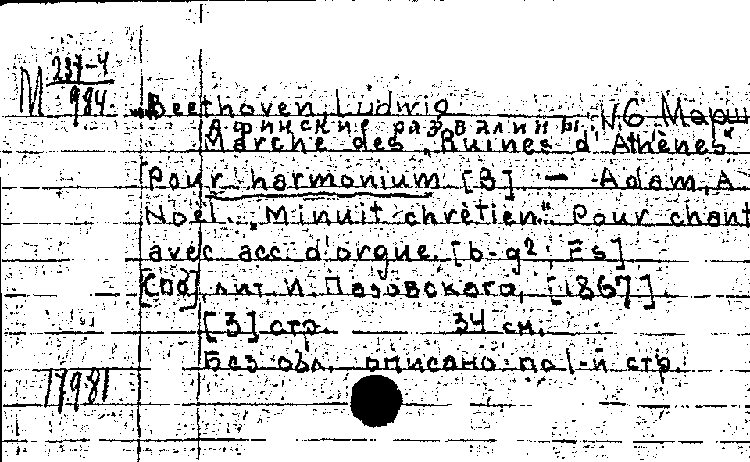 М 237-4
984
Beethoven, Ludwig
[Афинские развалины, №6 Марш
Marche des „Ruines d'Athènes"
Pour harmonium [B] — Adam, A.
Noël. „Minuit chrètien". Pour chant
avec acc. d'orgue. [b-g²; Es]
[Спб], лит. И. Пазовского, [1867].
[3] стр. 34 см.
Без обл. описано по 1-й стр.
17981